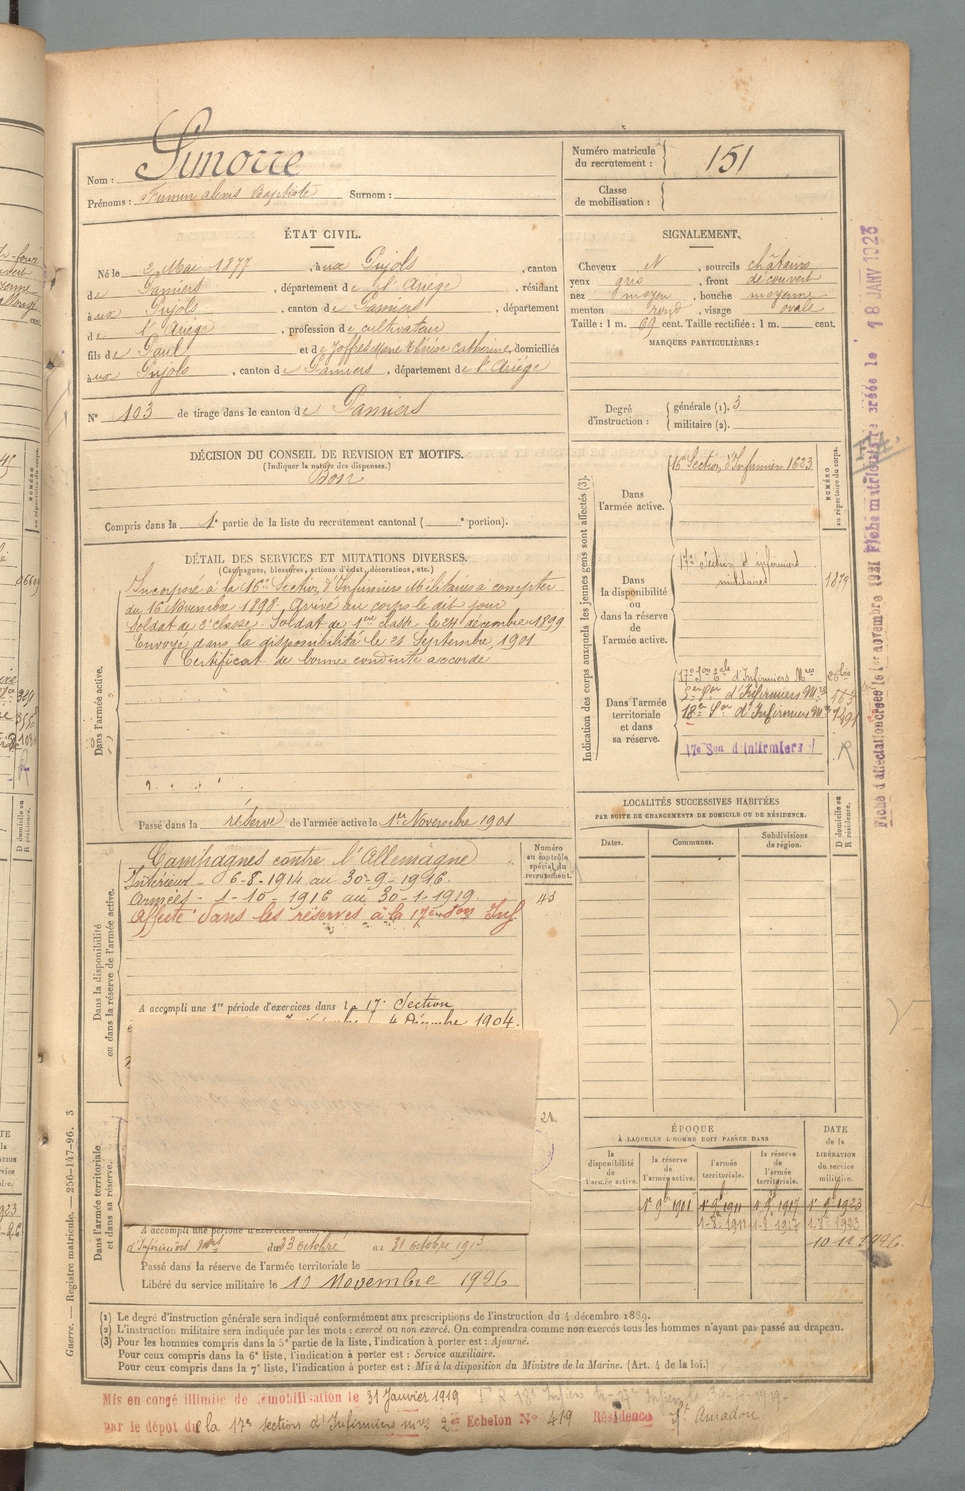 Nom : Simorre
Prénoms : Firmin Alexis Baptiste Surnom :
Numéro matricule du recrutement : 151
Classe de mobilisation :
ÉTAT CIVIL.
Né le 2 Mai 1877, à ux Pujols, canton
de Pamiers, département de l'Ariège, résidant
à ux Pujols, canton de Pamiers, département
de l'Ariège, profession de cultivateur
fils de Paul et de Joffres Marie Thérèse Catherine, domiciliés
à ux Pujols, canton de Pamiers, département de l'Ariège
N° 103 de tirage dans le canton de Pamiers
SIGNALEMENT.
Cheveux N, sourcils châtains
yeux gris, front découvert
nez moyen, bouche moyenne
menton rond, visage ovale
Taille : 1 m. 69 cent. Taille rectifiée : 1 m. cent.
MARQUES PARTICULIÈRES :
Degré d'instruction : générale (1). 3
militaire (2).
DÉCISION DU CONSEIL DE REVISION ET MOTIFS.
(Indiquer la nature des dispenses.)
Bon
Compris dans la 1e partie de la liste du recrutement cantonal ( e portion).
DÉTAIL DES SERVICES ET MUTATIONS DIVERSES.
(Campagnes, blessures, actions d'éclat, décorations, etc.)
Dans l'armée active.
Incorporé à la 16e Section d'Infirmiers Militaires à compter
du 16 Novembre 1898. Arrivé au corps le dit jour
Soldat de 2e classe. Soldat de 1ère classe le 24 décembre 1899
Envoyé dans la disponibilité le 21 Septembre 1901
Certificat de bonne conduite accordé
Passé dans la réserve de l'armée active le 1er Novembre 1901
Indication des corps auxquels les jeunes gens sont affectés (3).
NUMÉRO au répertoire du corps.
Dans l'armée active.
16e Section d'Infirmiers 1623
Dans la disponibilité ou dans la réserve de l'armée active.
17e Section d'infirmiers militaires
1879
Dans l'armée territoriale et dans sa réserve.
d'Infirmiers Mres
d'Infirmiers Mres
18e Son d'Infirmiers Mres
17e Son d'infirmiers
R
LOCALITÉS SUCCESSIVES HABITÉES
PAR SUITE DE CHANGEMENTS DE DOMICILE OU DE RÉSIDENCE.
Dates. Communes. Subdivisions de région.
D domicile ou R résidence.
Dans la disponibilité ou dans la réserve de l'armée active.
Numéro au contrôle spécial du recrutement.
43
Campagnes contre l'Allemagne
Intérieur - 6-8-1914 au 30-9-1916
Armées - 1-10-1916 au 30-1-1919
Affecté dans les réserves à la 17e Son Inf
A accompli une 1re période d'exercices dans la 17e Section
4 Décembre 1904.
Dans l'armée territoriale et dans sa réserve.
21
A accompli une période d'exercices dans
d'Infirmiers Mres du 23 octobre au 31 octobre 1913
Passé dans la réserve de l'armée territoriale le
Libéré du service militaire le 10 Novembre 1926
ÉPOQUE
À LAQUELLE L'HOMME DOIT PASSER DANS
la disponibilité de l'armée active. la réserve de l'armée active. l'armée territoriale. la réserve de l'armée territoriale.
DATE de la LIBÉRATION du service militaire.
1er 9bre 1901 1er 9bre 1911 1er 9bre 1917 1er 9bre 1923
1-8-1911 1-8-1917 1-8-1923
10-11 1926
(1) Le degré d'instruction générale sera indiqué conformément aux prescriptions de l'instruction du 4 décembre 1889.
(2) L'instruction militaire sera indiquée par les mots : exercé ou non exercé. On comprendra comme non exercés tous les hommes n'ayant pas passé au drapeau.
(3) Pour les hommes compris dans la 5e partie de la liste, l'indication à porter est : Ajourné.
Pour ceux compris dans la 6e liste, l'indication à porter est : Service auxiliaire.
Pour ceux compris dans la 7e liste, l'indication à porter est : Mis à la disposition du Ministre de la Marine. (Art. 4 de la loi.)
Mis en congé illimité de démobilisation le 31 Janvier 1919
par le dépôt de la 17e section d'Infirmiers mres 2e Echelon N° 419 Résidence St Amadou
Guerre. — Registre matricule. — 256-147-96. 3
Fiche d'affectation créée le 1er novembre 1921 Fiche matricule créée le 18 JANV 1923